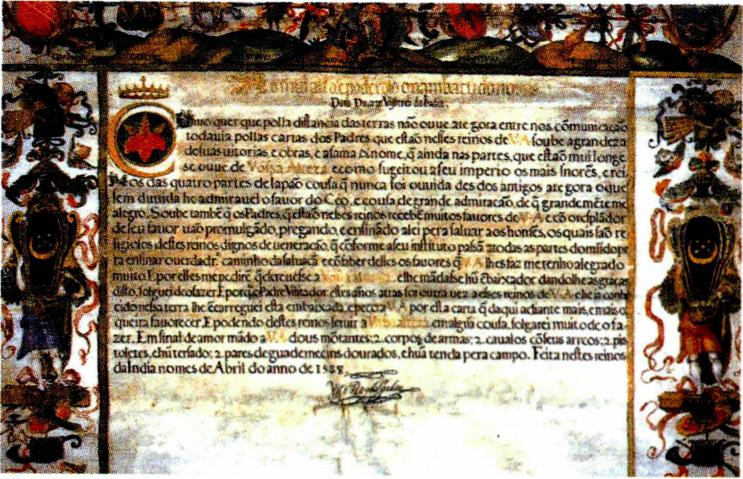 Dom Duarte Visorei da India.
Como quer que polla distancia das terras não ouue ate gora entre nos cõmunicação
todauia pollas cartas dos Padres que estaõ nesses reinos de V.A. soube a grandeza
de suas uitorias e obras, e a fama do nome, q̃ ainda nas partes, que estaõ mui longe
se ouue de Vossa Alteza e como sugeitou a seu imperio os mais snorẽs, e rei
nos das quatro partes de Iapaõ cousa q̃ nunca foi ouuida des dos antigos ate gora o que
sem duuida he admirauel o fauor do Ceo, e cousa de grande admiração, de q̃ grandemẽte me
alegro. Soube tambẽ q̃ os Padres, q̃ estaõ nesses reinos recebẽ muitos fauores de V.A. e cõ o resplãdor
de seu fauor uaõ promulgãdo, pregando, e ensinãdo a lei pera saluar aos homẽs, os quais saõ re
ligiosos destes reinos dignos de ueneração, q̃ cõforme a seu instituto passã a todas as partes do mũdo pe
ra ensinar o uerdadrº. caminho da saluaçã e cõ saber delles os fauores q̃ V.A. lhes faz me tenho alegrado
muito. E por elles me pedirẽ q̃ escreuesse a Vossa Alteza e lhe mãdasse hũ ẽbaixador dandolhe as graças
disto, folguei de o fazer. E porq̃ o Padre Visitador elles años atras foi outra uez a esses reinos de V.A. e he ia conhe
cido nessa terra lhe ẽcarreguei esta embaixada, e peço a V.A. por esta carta q̃ daqui adiante mais, e mais o
queira fauorecer. E podendo destes reinos seruir a Vossa Alteza em algũa cousa, folgarei muito de o fa
zer. Em sinal de amor mãdo a V.A. dous mõtantes; 2. corpos de armas; 2. caualos cõ seus arreos; 2. pis
toletes, e hũ tersado; 2. pares de guadamecins dourados, e hũa tenda pera campo. Feita nestes reinos
da India no mes de Abril do anno de 1588.